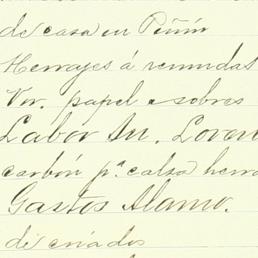 de casa en Piñin
Herrajes á remudas
Vor. papel e sobres
Labor Sn. Loren
carbón pa. calsa herra
Gastos Alamo.
de criados